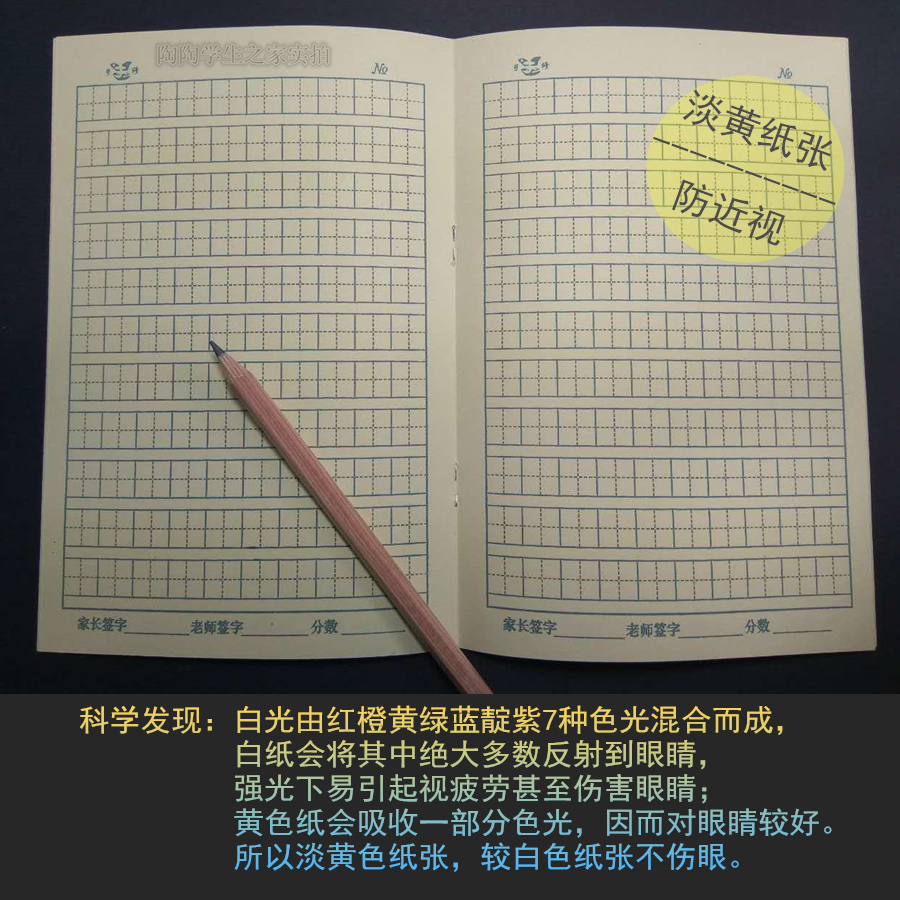 陶陶学生之家实拍
№
№
淡黄纸张
防近视
家长签字 老师签字 分数
家长签字 老师签字 分数
科学发现：白光由红橙黄绿蓝靛紫7种色光混合而成，
白纸会将其中绝大多数反射到眼睛，
强光下易引起视疲劳甚至伤害眼睛；
黄色纸会吸收一部分色光，因而对眼睛较好。
所以淡黄色纸张，较白色纸张不伤眼。